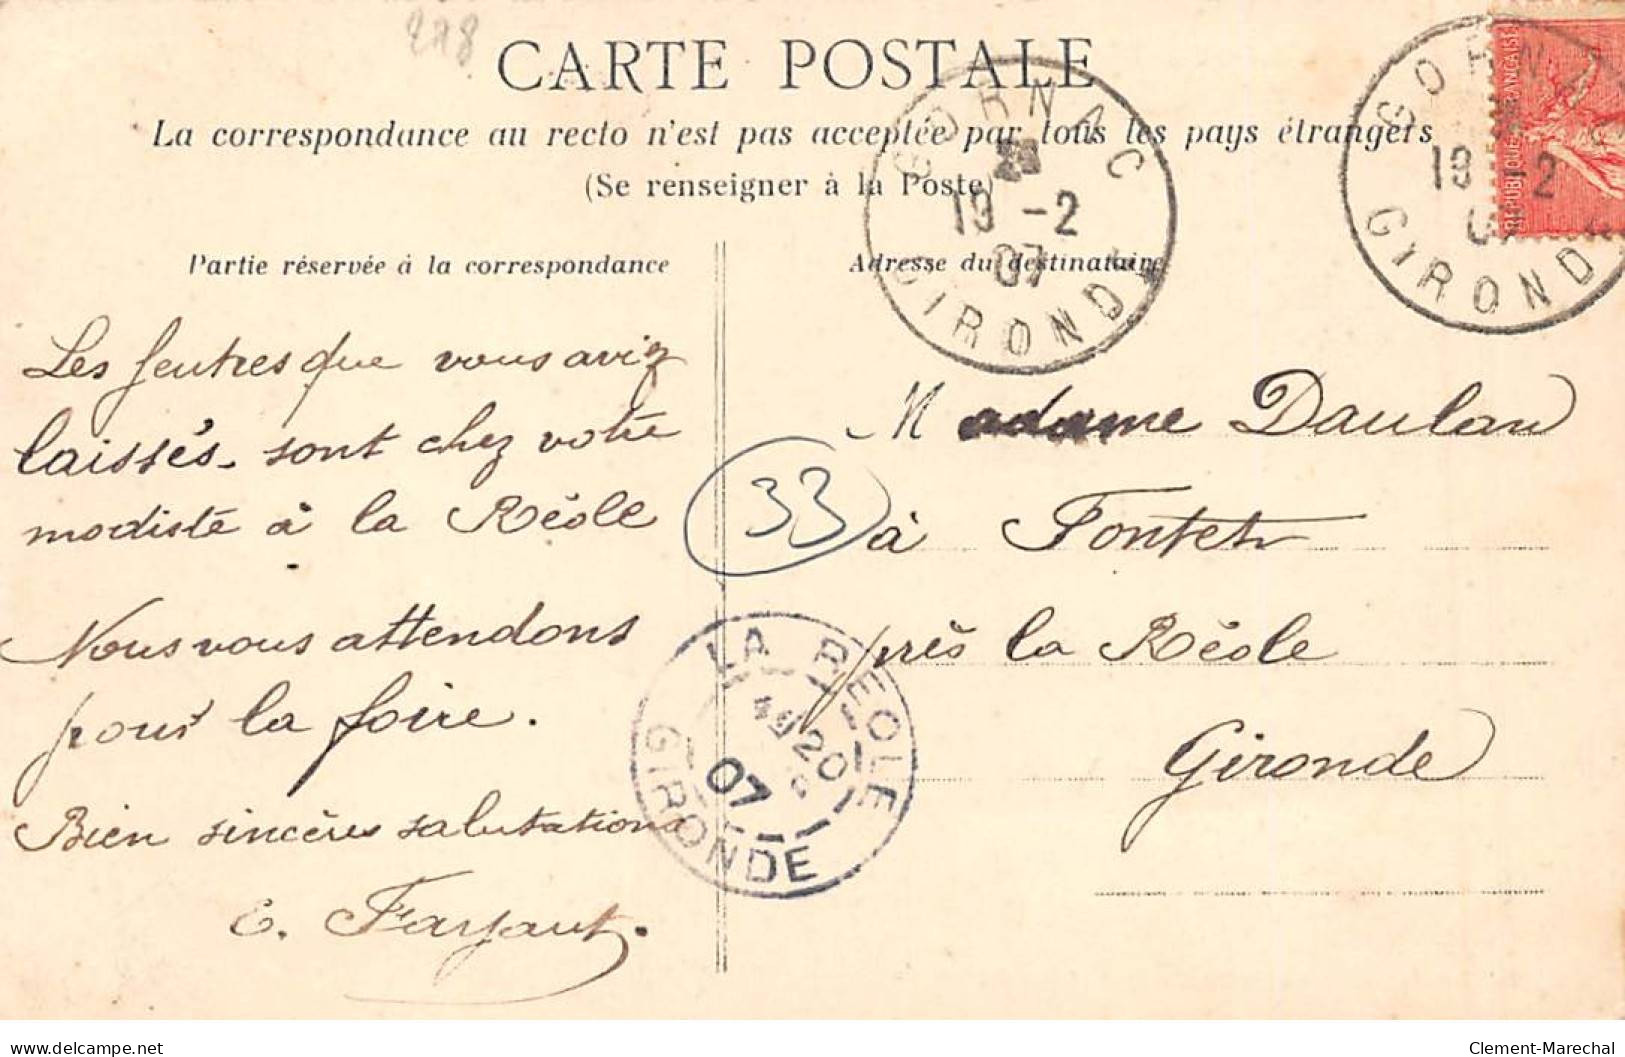 278
CARTE POSTALE
La correspondance au recto n'est pas acceptée par tous les pays étrangers
(Se renseigner à la Poste)
GORNAC
19 -2
07
GIRONDE
GORNAC
19 -2
07
GIRONDE
REPUBLIQUE FRANÇAISE
Partie réservée à la correspondance
Adresse du destinataire
Les feutres que vous aviez
laissés sont chez votre
modiste à la Réole
Nous vous attendons
pour la foire.
Bien sincères salutations
E. Farjaut.
33
Madame Daulan
à Fontet
près la Réole
Gironde
LA REOLE
20
07
GIRONDE
delcampe.net
Clement-Marechal